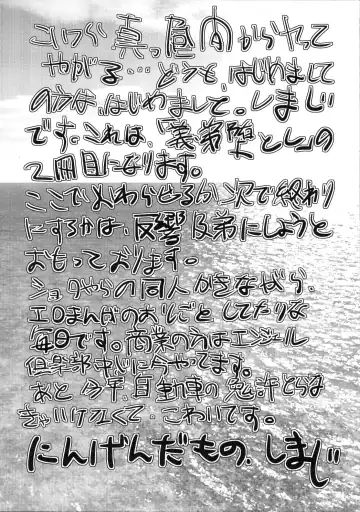 こいつら真っ昼間からヤって
やがる…どうも、はじめまして
の方は、はじめまして。しまじ
です。これは、「義弟堕とし」の
2冊目になります。
ここでおわらせるか次で終わり
にするかは、反響次第にしようと
おもっております。
ショタやらの同人かきながら、
エロまんがのおしごとしてたりな
毎日です。商業の方はエンジェル
倶楽部中心に今やってます。
あと今年、自動車の免許とらな
きゃいけなくて…こわいです。
にんげんだもの、しまじ